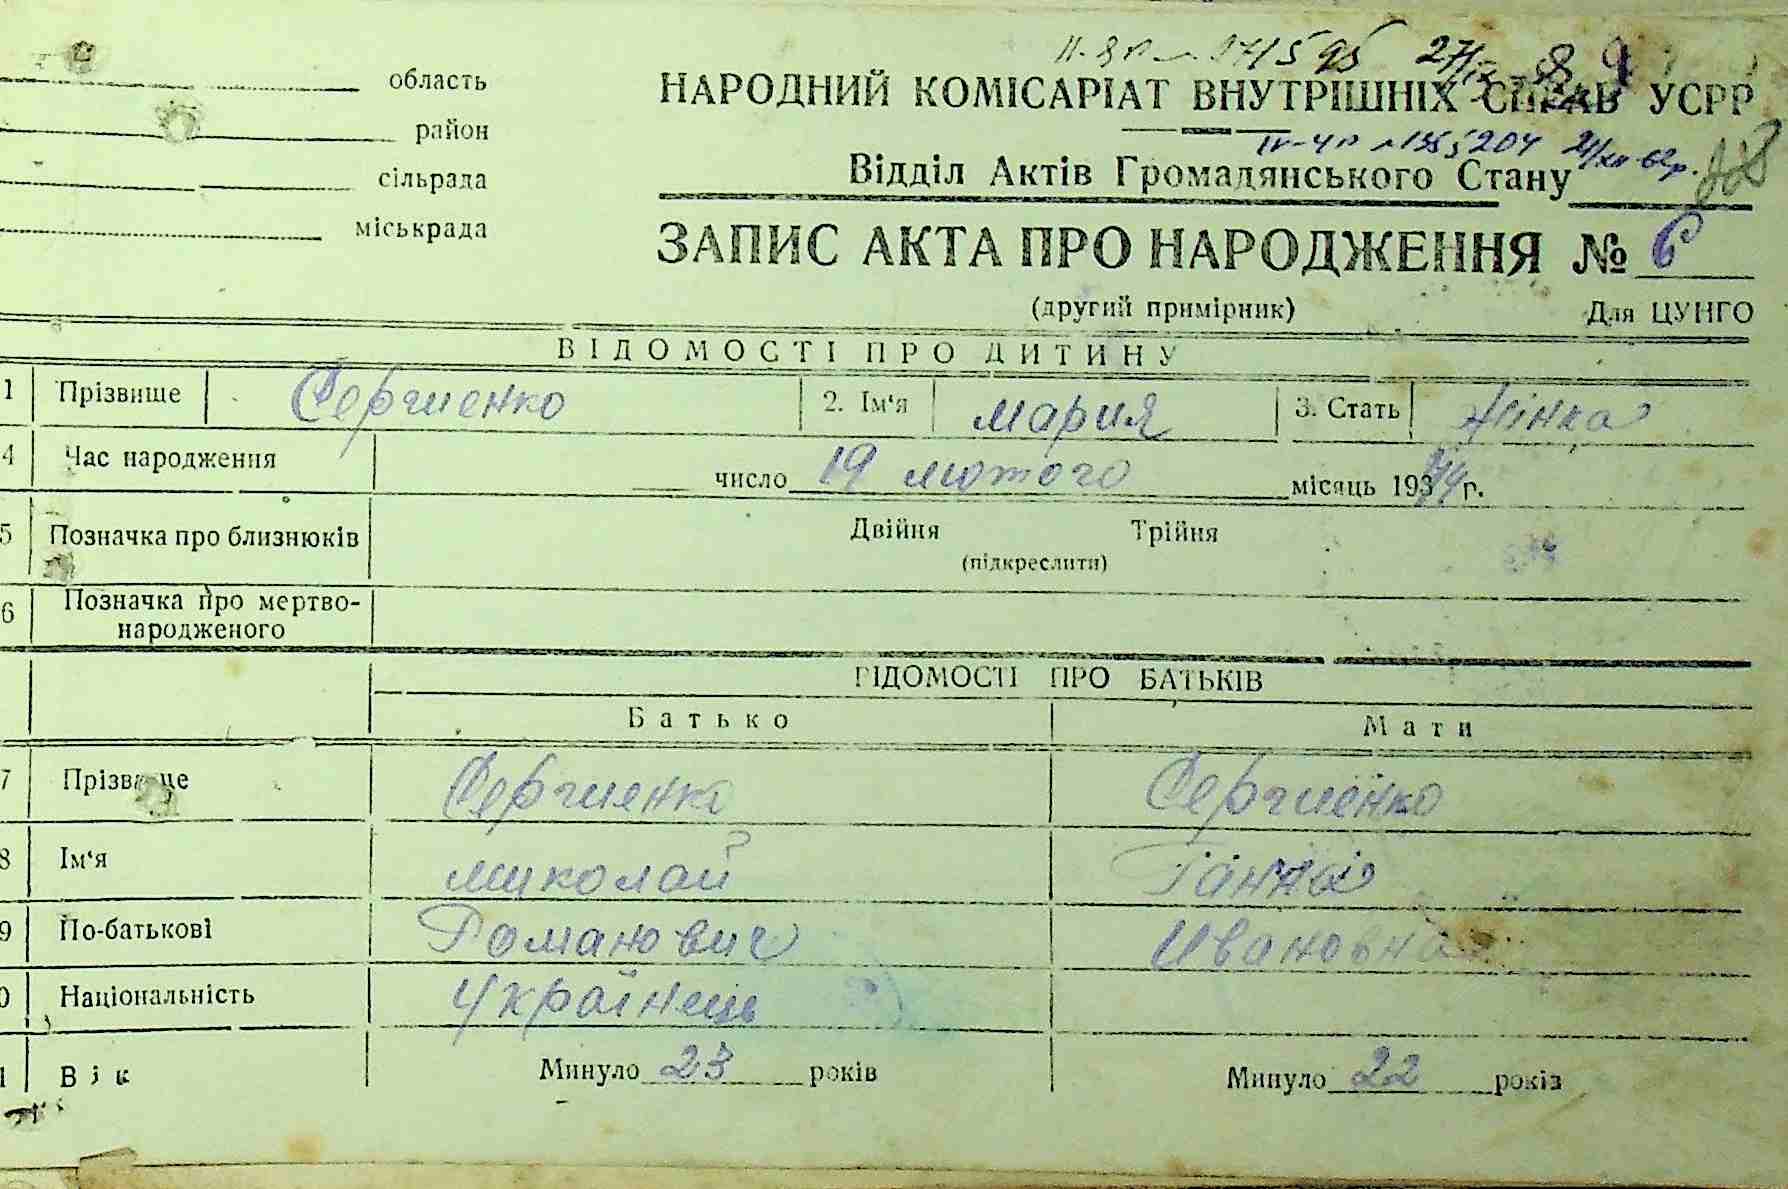 область
район
сільрада
міськрада
27/IX-58 9
НАРОДНИЙ КОМІСАРІАТ ВНУТРІШНІХ СПРАВ УСРР
Відділ Актів Громадянського Стану
ЗАПИС АКТА ПРО НАРОДЖЕННЯ № 6
(другий примірник) Для ЦУНГО
ВІДОМОСТІ ПРО ДИТИНУ
1 Прізвище Сергиенко 2. Ім‘я Мария 3. Стать жінка
4 Час народження число 19 лютого місяць 193 г.
5 Позначка про близнюків Двійня Трійня
(підкреслити)
6 Позначка про мертво-
народженого
ВІДОМОСТІ ПРО БАТЬКІВ
Батько Мати
7 Прізвище Сергиенко Сергиенко
8 Ім‘я Миколай Ганна
9 По-батькові Романович Ивановна
0 Національність Українець
1 Вік Минуло 23 років Минуло 22 років